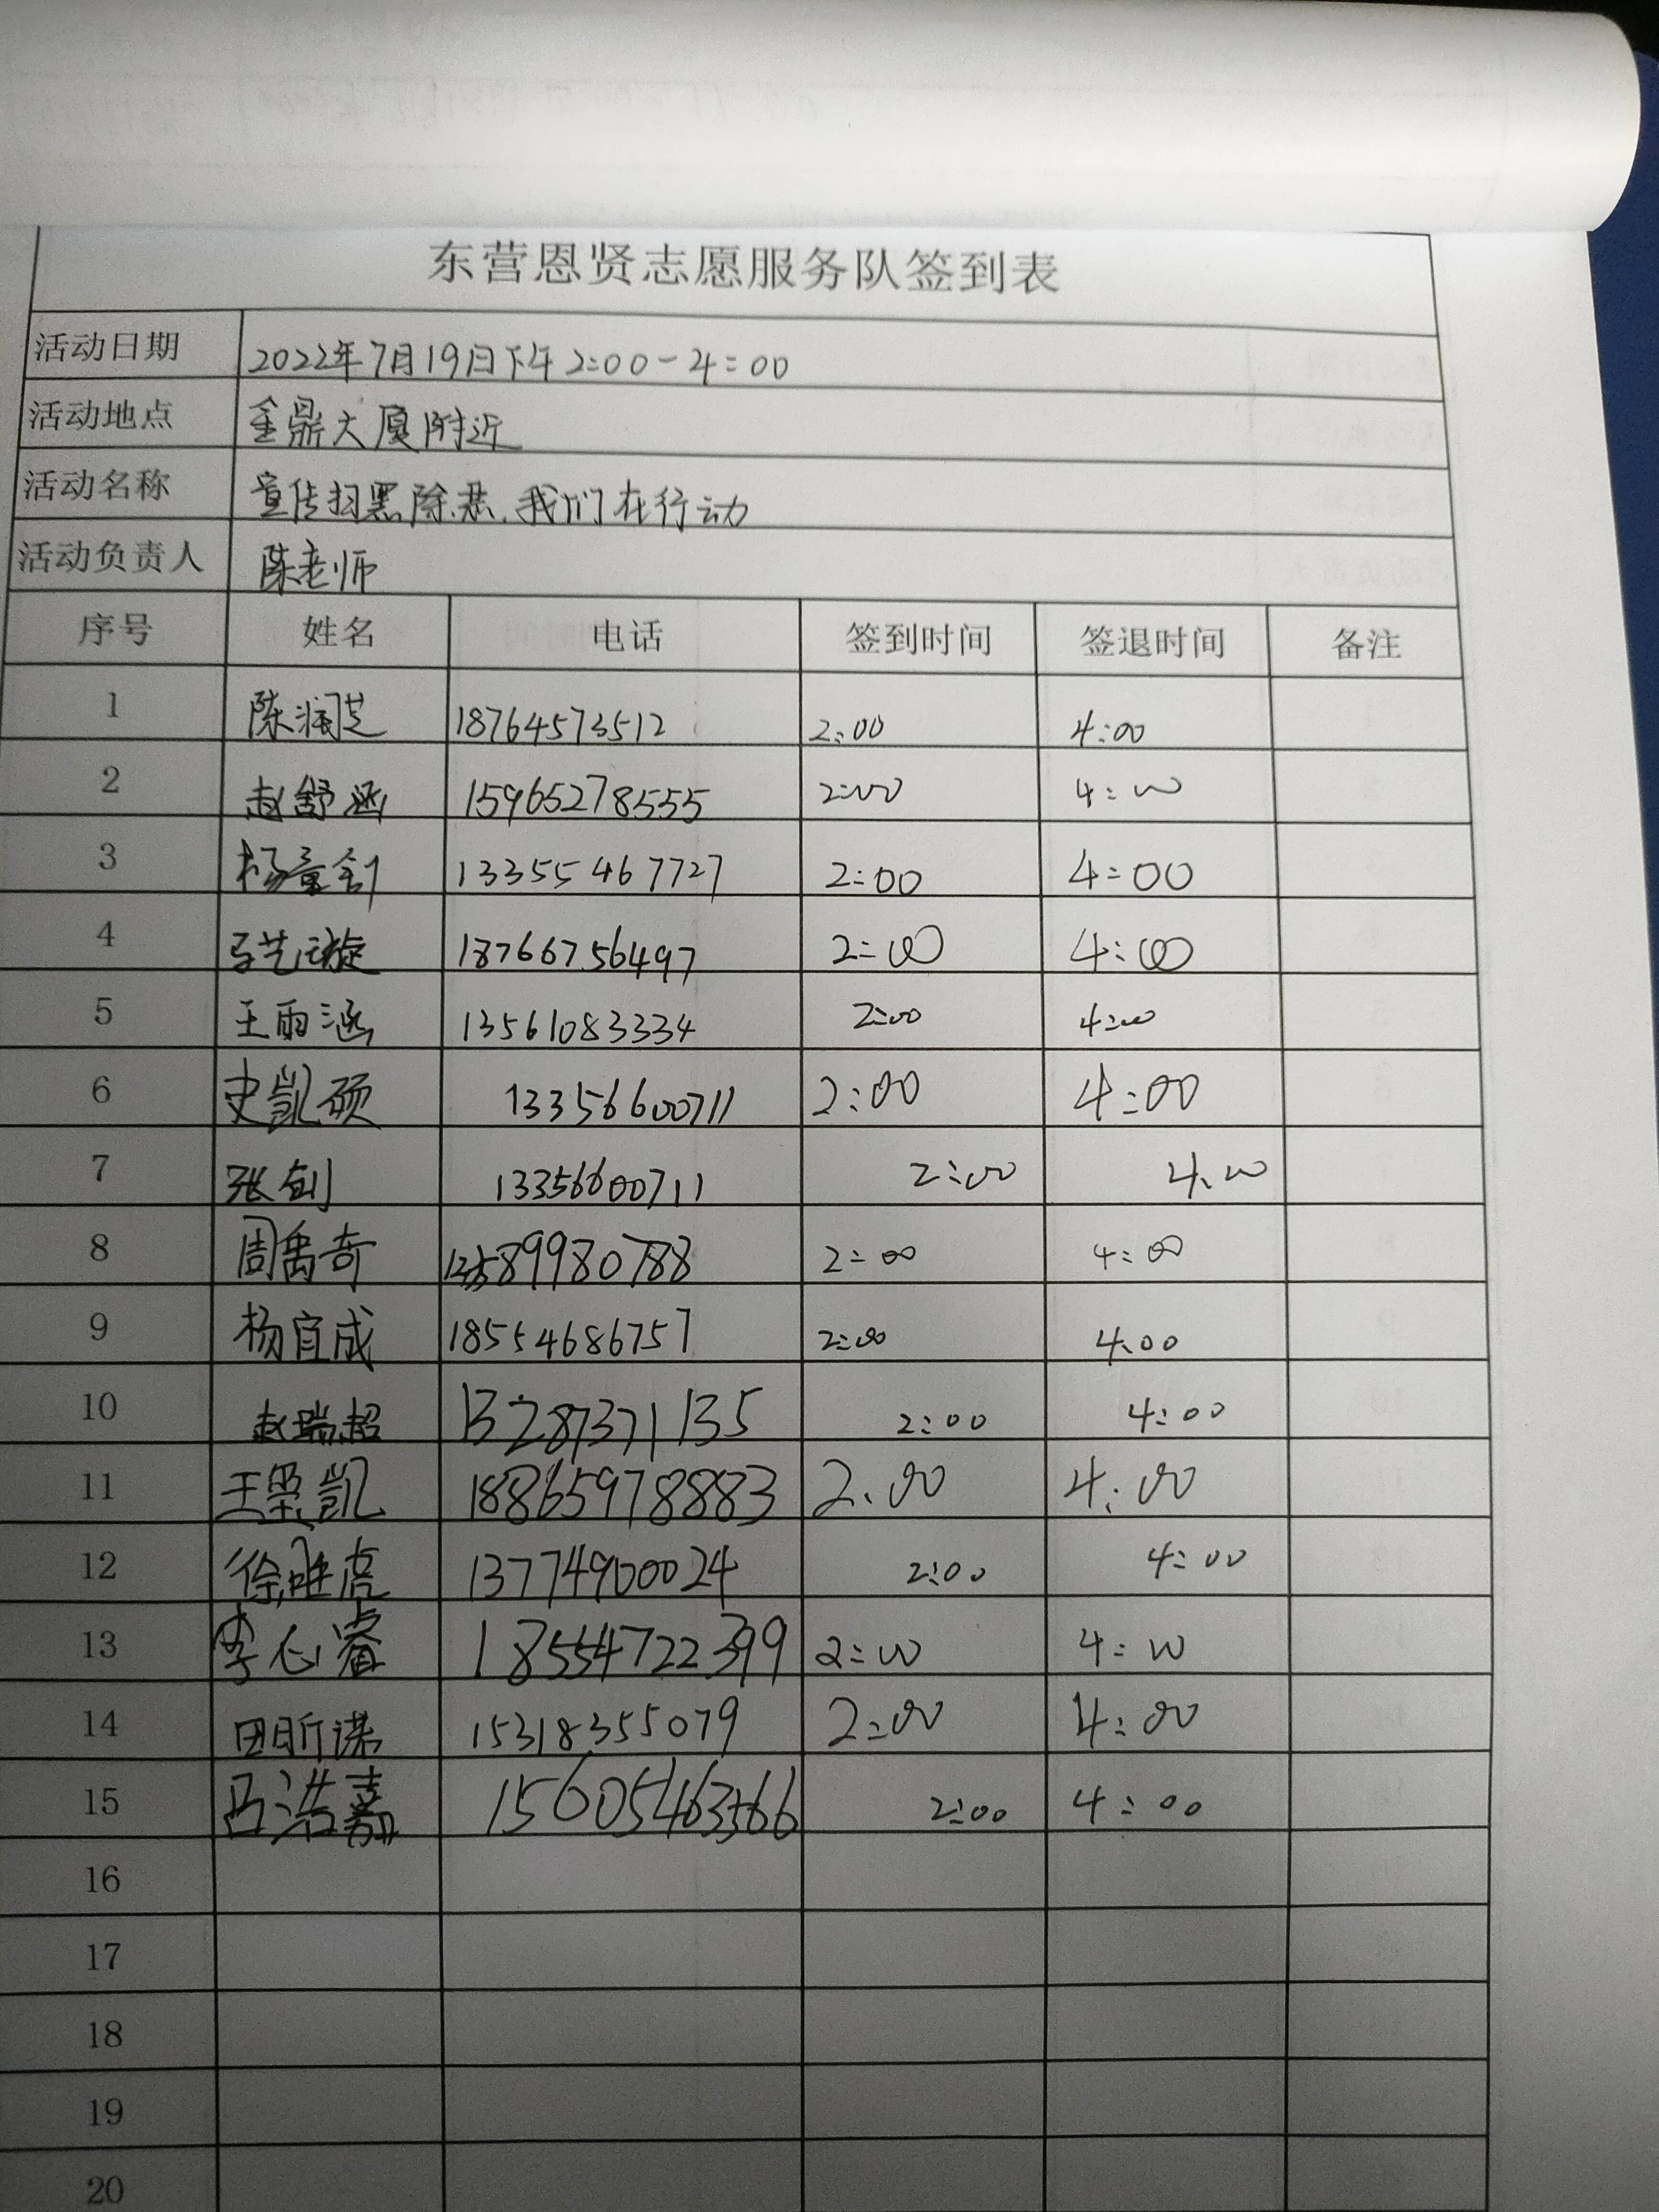 东营恩贤志愿服务队签到表
活动日期 2022年7月19日下午2:00-4:00
活动地点 金鼎大厦附近
活动名称 宣传扫黑除恶,我们在行动
活动负责人 陈老师
序号 姓名 电话 签到时间 签退时间 备注
1 陈润芝 18764573512 2:00 4:00
2 赵舒涵 15965278555 2:00 4:00
3 杨童剑 13355467727 2:00 4:00
4 马艺璇 18766756497 2:00 4:00
5 王雨涵 13561083334 2:00 4:00
6 史凯硕 13356600711 2:00 4:00
7 张创 13356600711 2:00 4:00
8 周禹奇 2:00 4:00
9 杨宜成 18554686757 2:00 4:00
10 赵瑞超 13287371135 2:00 4:00
11 王梁凯 18865978883 2:00 4:00
12 徐胜虎 13774900024 2:00 4:00
13 李心睿 18554722399 2:00 4:00
14 田昕诺 15318355079 2:00 4:00
15 吕浩嘉 2:00 4:00
16
17
18
19
20